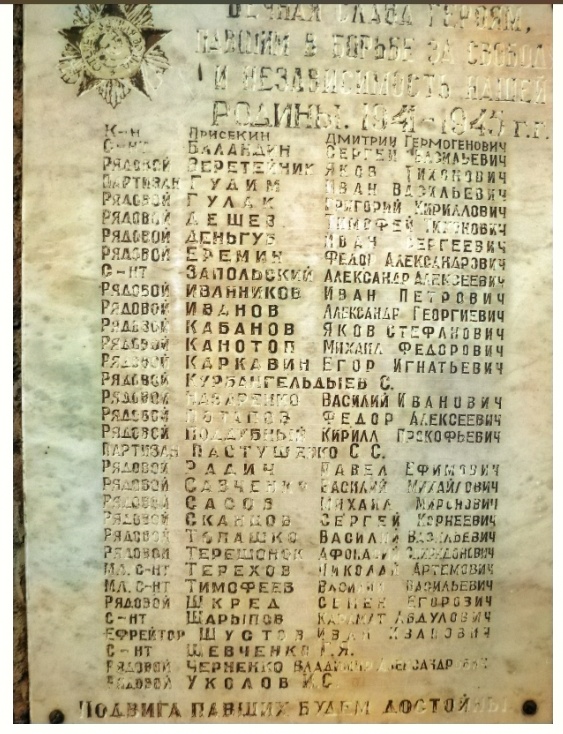 ВЕЧНАЯ СЛАВА ГЕРОЯМ,
ПАВШИМ В БОРЬБЕ ЗА СВОБОД
И НЕЗАВИСИМОСТЬ НАШЕЙ
РОДИНЫ. 1941-1945 г.г.
К-Н ПРИСЕКИН ДМИТРИЙ ГЕРМОГЕНОВИЧ
С-НТ БАЛАНДИН СЕРГЕЙ ВАСИЛЬЕВИЧ
РЯДОВОЙ ВЕРЕТЕЙНИК ЯКОВ ТИХОНОВИЧ
ПАРТИЗАН ГУДИМ ИВАН ВАСИЛЬЕВИЧ
РЯДОВОЙ ГУЛАК ГРИГОРИЙ КИРИЛЛОВИЧ
РЯДОВОЙ ДЕШЕВ ТИМОФЕЙ ТИХОНОВИЧ
РЯДОВОЙ ДЕНЬГУБ ИВАН СЕРГЕЕВИЧ
РЯДОВОЙ ЕРЕМИН ФЕДОР АЛЕКСАНДРОВИЧ
С-НТ ЗАПОЛЬСКИЙ АЛЕКСАНДР АЛЕКСЕЕВИЧ
РЯДОВОЙ ИВАННИКОВ ИВАН ПЕТРОВИЧ
РЯДОВОЙ ИВАНОВ АЛЕКСАНДР ГЕОРГИЕВИЧ
РЯДОВОЙ КАБАНОВ ЯКОВ СТЕФАНОВИЧ
РЯДОВОЙ КАНОТОП МИХАИЛ ФЕДОРОВИЧ
РЯДОВОЙ КАРКАВИН ЕГОР ИГНАТЬЕВИЧ
РЯДОВОЙ КУРБАНГЕЛЬДЫЕВ С.
РЯДОВОЙ НАЗАРЕНКО ВАСИЛИЙ ИВАНОВИЧ
РЯДОВОЙ ПОТАПОВ ФЕДОР АЛЕКСЕЕВИЧ
РЯДОВОЙ ПОДДУБНЫЙ КИРИЛЛ ПРОКОФЬЕВИЧ
ПАРТИЗАН ПАСТУШЕНКО С С.
РЯДОВОЙ РАДИЧ ПАВЕЛ ЕФИМОВИЧ
РЯДОВОЙ САВЧЕНКО ВАСИЛИЙ МИХАЙЛОВИЧ
РЯДОВОЙ САСОВ МИХАИЛ МИРОНОВИЧ
РЯДОВОЙ СКАНЦОВ СЕРГЕЙ КОРНЕЕВИЧ
РЯДОВОЙ ТОПАШКО ВАСИЛИЙ ВАСИЛЬЕВИЧ
РЯДОВОЙ ТЕРЕШОНОК
МЛ. С-НТ ТЕРЕХОВ НИКОЛАЙ АРТЕМОВИЧ
МЛ. С-НТ ТИМОФЕЕВ ВАСИЛИЙ ВАСИЛЬЕВИЧ
РЯДОВОЙ ШКРЕД СЕМЕН ЕГОРОВИЧ
С-НТ ШАРЫПОВ АБДУЛОВИЧ
ЕФРЕЙТОР ШУСТОВ ИВАН ИВАНОВИЧ
С-НТ ШЕВЧЕНКО Г.Я.
РЯДОВОЙ ЧЕРНЕНКО ВЛАДИМИР АЛЕКСАНДРОВИЧ
РЯДОВОЙ УКОЛОВ И.С.
ПОДВИГА ПАВШИХ БУДЕМ ДОСТОЙНЫ